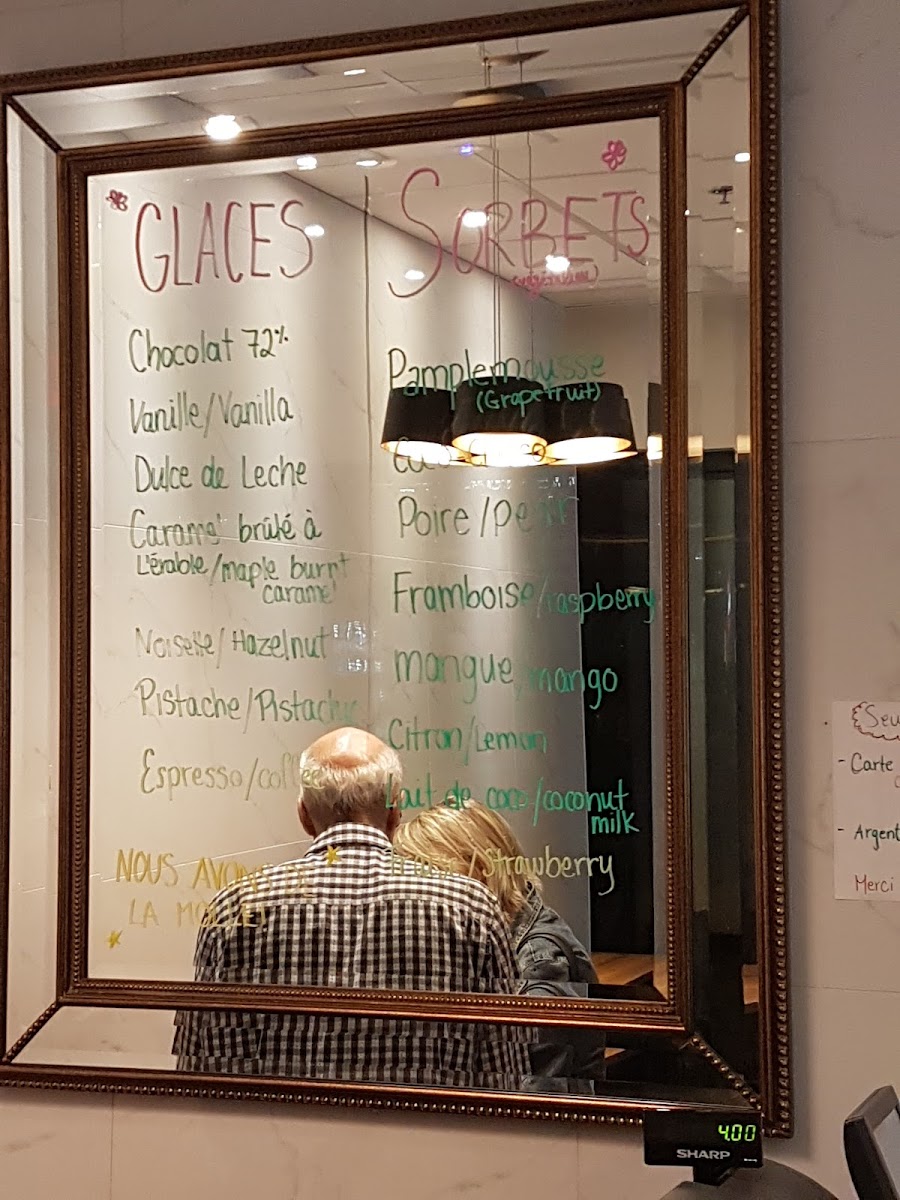 GLACES
Chocolat 72%
Vanille/Vanilla
Dulce de Leche
Caramel brûlé à
L'érable/maple burnt
caramel
Noisette/Hazelnut
Pistache/Pistachio
Espresso/coffee
NOUS AVONS DE
LA
SORBETS
Pamplemousse
(Grapefruit)
Poire/
Framboise/raspberry
mangue/mango
Citron/Lemon
Lait de coco/coconut
milk
/Strawberry
Seu
- Carte
- Argent
Merci
4.00
SHARP